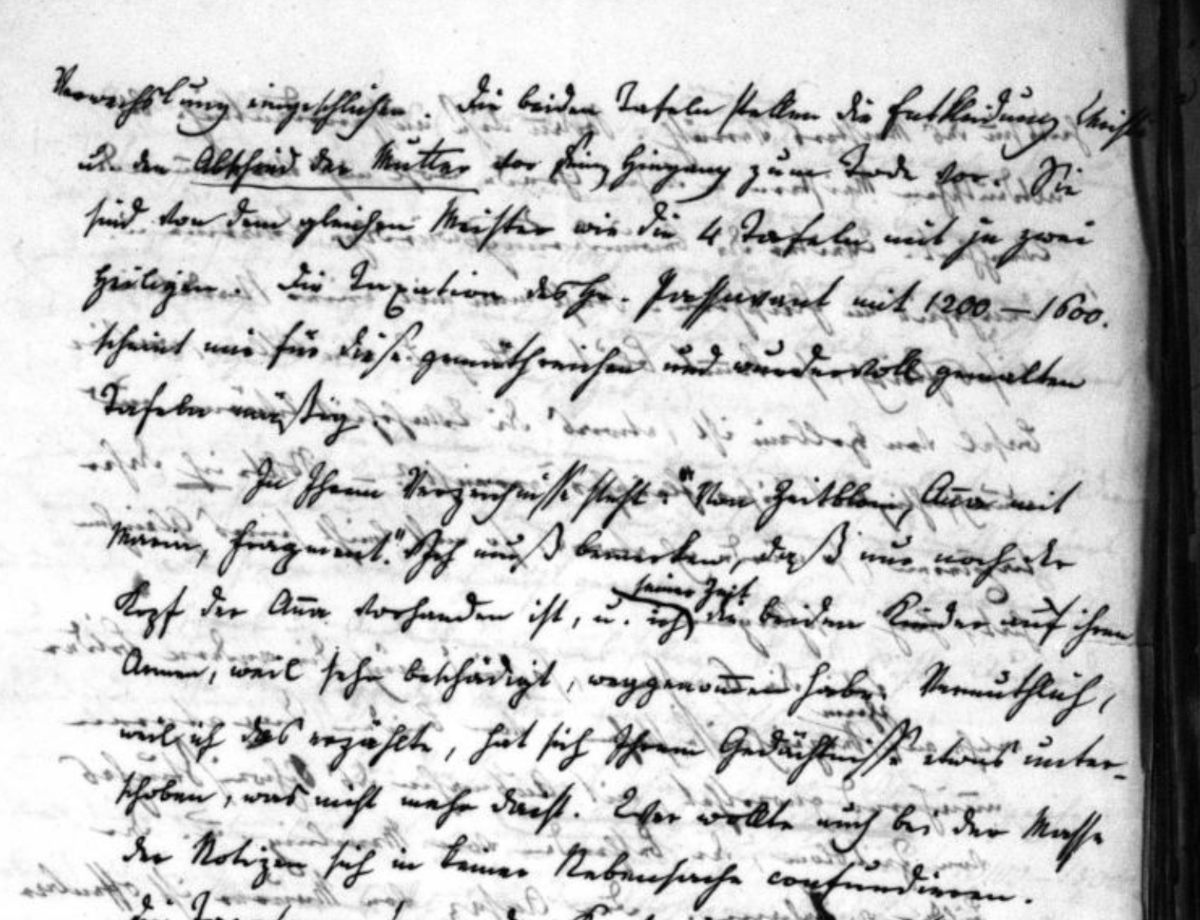 Verwechslung eingeschlichen. Die beiden Tafeln stellen die Entkleidung Christi
u. den Abschied der Mutter vor Hingang zum Tode vor. Sie
sind von dem gleichen Meister wie die 4 Tafeln mit je zwei
Heiligen. Die Taxation des Hr. Passavant mit 1200 – 1600.
scheint mir für diese gemüthreichen und wundervoll gemalten
Tafeln mäßig.
In Ihrem Verzeichnisse steht: "Von Zeitblom, Anna mit
Maria, Fragment." Ich muß bemerken, daß nur noch der
seiner Zeit
Kopf der Anna vorhanden ist, u. ich die beiden Kinder auf ihren
Armen, weil sehr beschädigt, weggenommen habe. Vermuthlich,
weil ich das erzählte, hat sich Ihrem Gedächtnisse etwas unter-
schoben, was nicht mehr da ist. Wer wollte auch bei der Masse
der Notizen sich in keiner Nebensache confundieren.